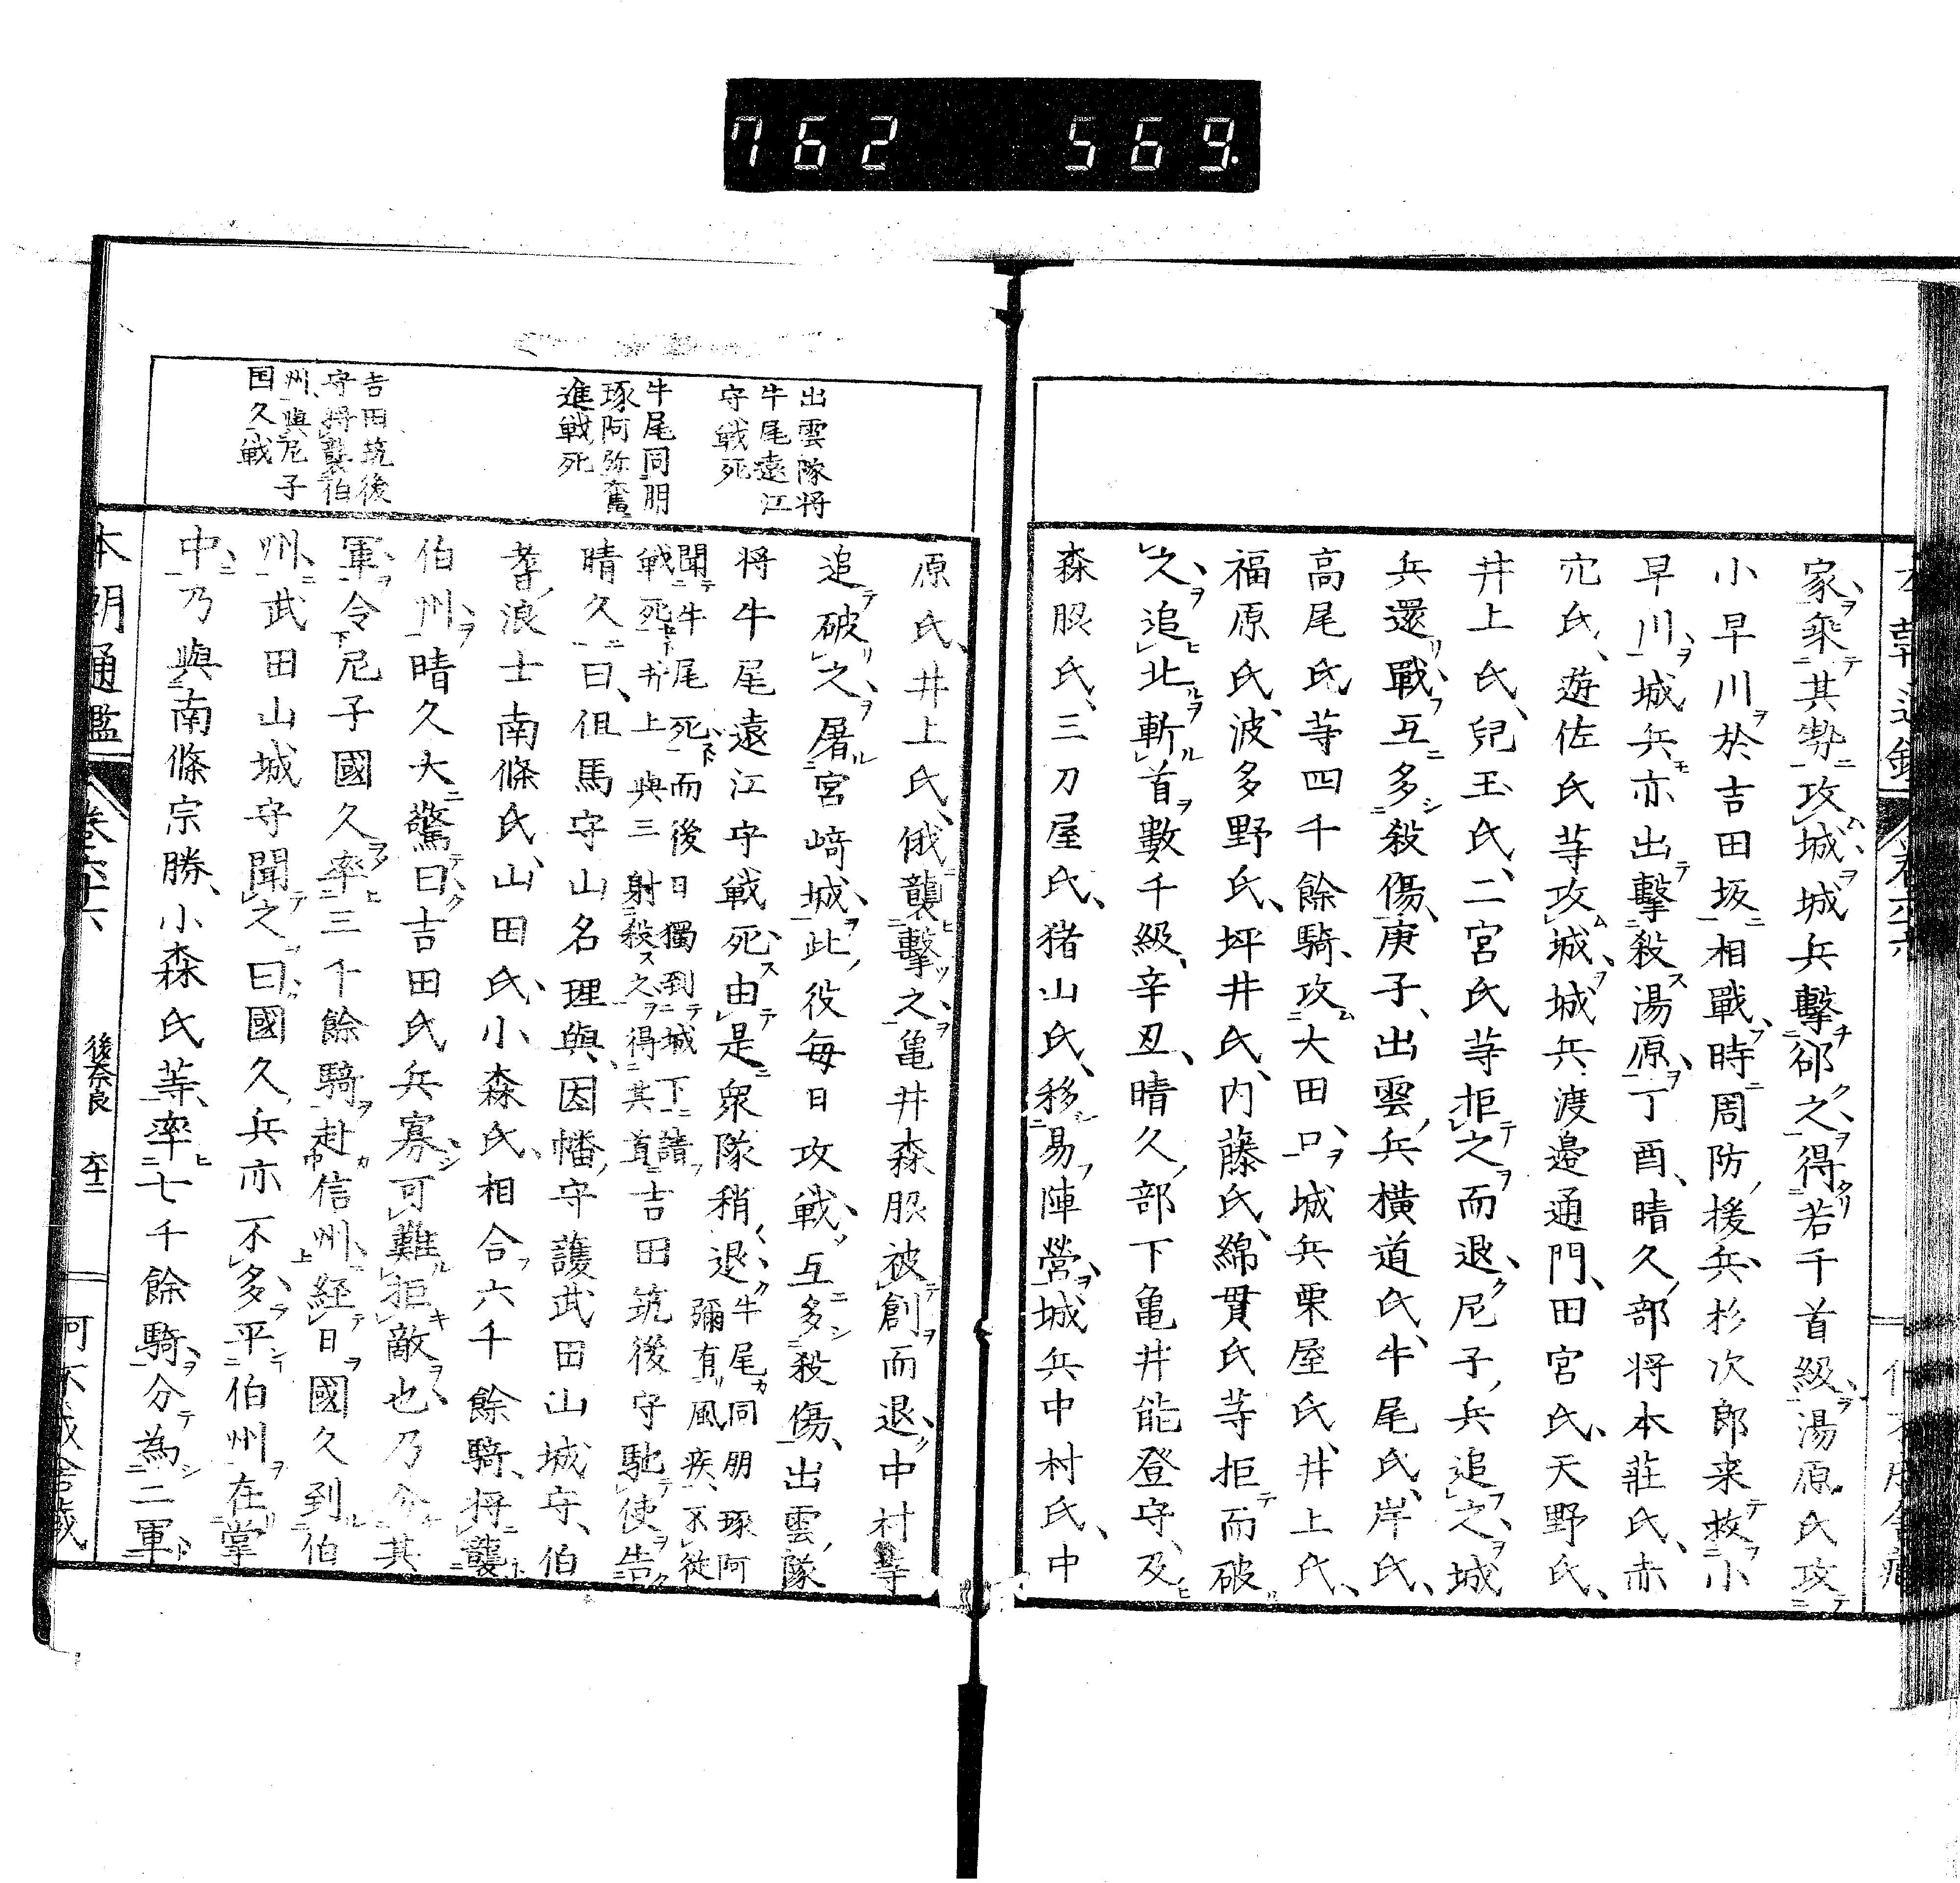 762 569.
家乘其勢攻城城兵擊郤之得若千首級湯原氏攻
小早川於吉田坂相戰時周防援兵杉次郎来救小
早川城兵亦出擊殺湯原丁酉晴久部将本莊氏赤
穴氏遊佐氏等攻城城兵渡邉通門田宮氏天野氏
井上氏兒玉氏二宮氏等拒之而退尼子兵追之城
兵還戰互多殺傷庚子出雲兵橫道氏牛尾氏岸氏
高尾氏等四千餘騎攻大田口城兵栗屋氏井上氏
福原氏波多野氏坪井氏内藤氏綿貫氏等拒而破
之追北斬首數千級辛丑晴久部下亀井能登守及
森脵氏三刀屋氏猪山氏移易陣營城兵中村氏中
出雲隊将
牛尾遠江
守戰死
牛尾同朋
琢阿弥奮
進戰死
吉田筑後
守将襲伯
州與尼子
国久戰
原氏井上氏俄襲擊之亀井森脵被創而退中村等
追破之屠宮﨑城此役每日攻戰互多殺傷出雲隊
将牛尾遠江守戰死由是衆隊稍退牛尾同朋琢阿
彌有風疾不從
聞牛尾死而後日獨到城下請
戰死井上與三射殺之得其首吉田筑後守馳使告
晴久曰伹馬守山名理與因幡守護武田山城守伯
耆浪士南條氏山田氏小森氏相合六千餘騎将襲
伯州晴久大驚曰吉田氏兵寡可難拒敵也乃分其
軍令尼子國久率三千餘騎赴信州経日國久到伯
州武田山城守聞之曰國久兵亦不多平伯州在掌
中乃與南條宗勝小森氏等率七千餘騎分為二軍
本朝通鑑 卷六十六 後奈良 六十二